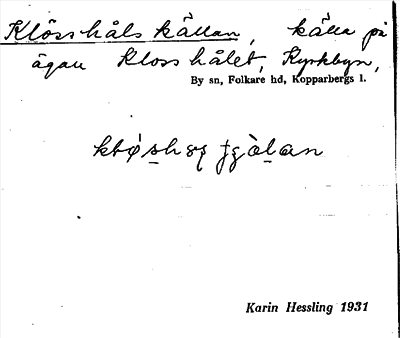 Klösshåls källan, källa på
ägan Klosshålet, Kyrkbyn,
By sn, Folkare hd, Kopparbergs l.
Karin Hessling 1931